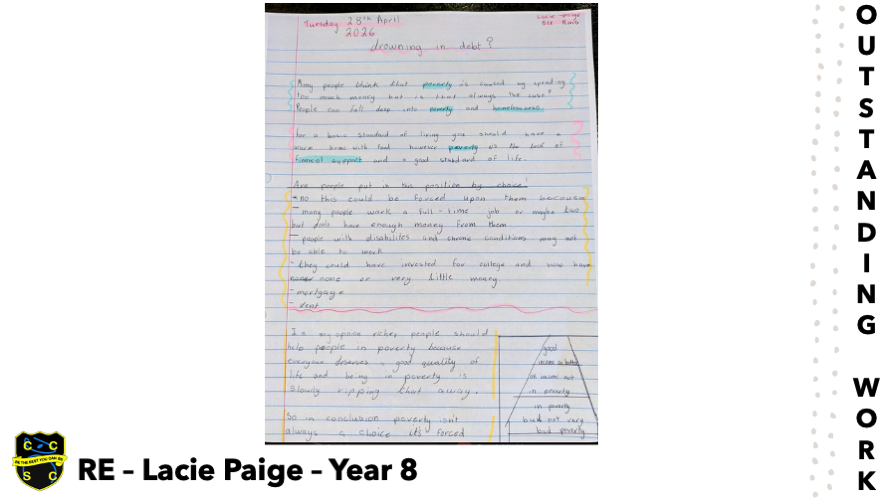 Tuesday 28th April
2026
Lacie Paige
drowning in debt?
Many people think that poverty is caused by spending
too much money but is that always the case?
People can fall deep into poverty and homelessness.
for a basic standard of living you should have a
warm home with food however poverty is the lack of
financial support and a good standard of life.
Are people put in this position by choice!
- no this could be forced upon them because
- many people work a full-time job or maybe two
but don't have enough money from them
- people with disabilites and chronic conditions may not
be able to work
- they could have invested for college and now have
none or very little money
- mortgage
- rent
In my opinion richer people should
help people in poverty because
everyone deserves a good quality of
life and being in poverty is
slowly ripping that away.
So in conclusion poverty isn't
always a choice it's forced
good
in poverty
in poverty
bad not very
bad poverty
C C
BE THE BEST YOU CAN BE
S C
RE – Lacie Paige – Year 8
OUTSTANDING WORK